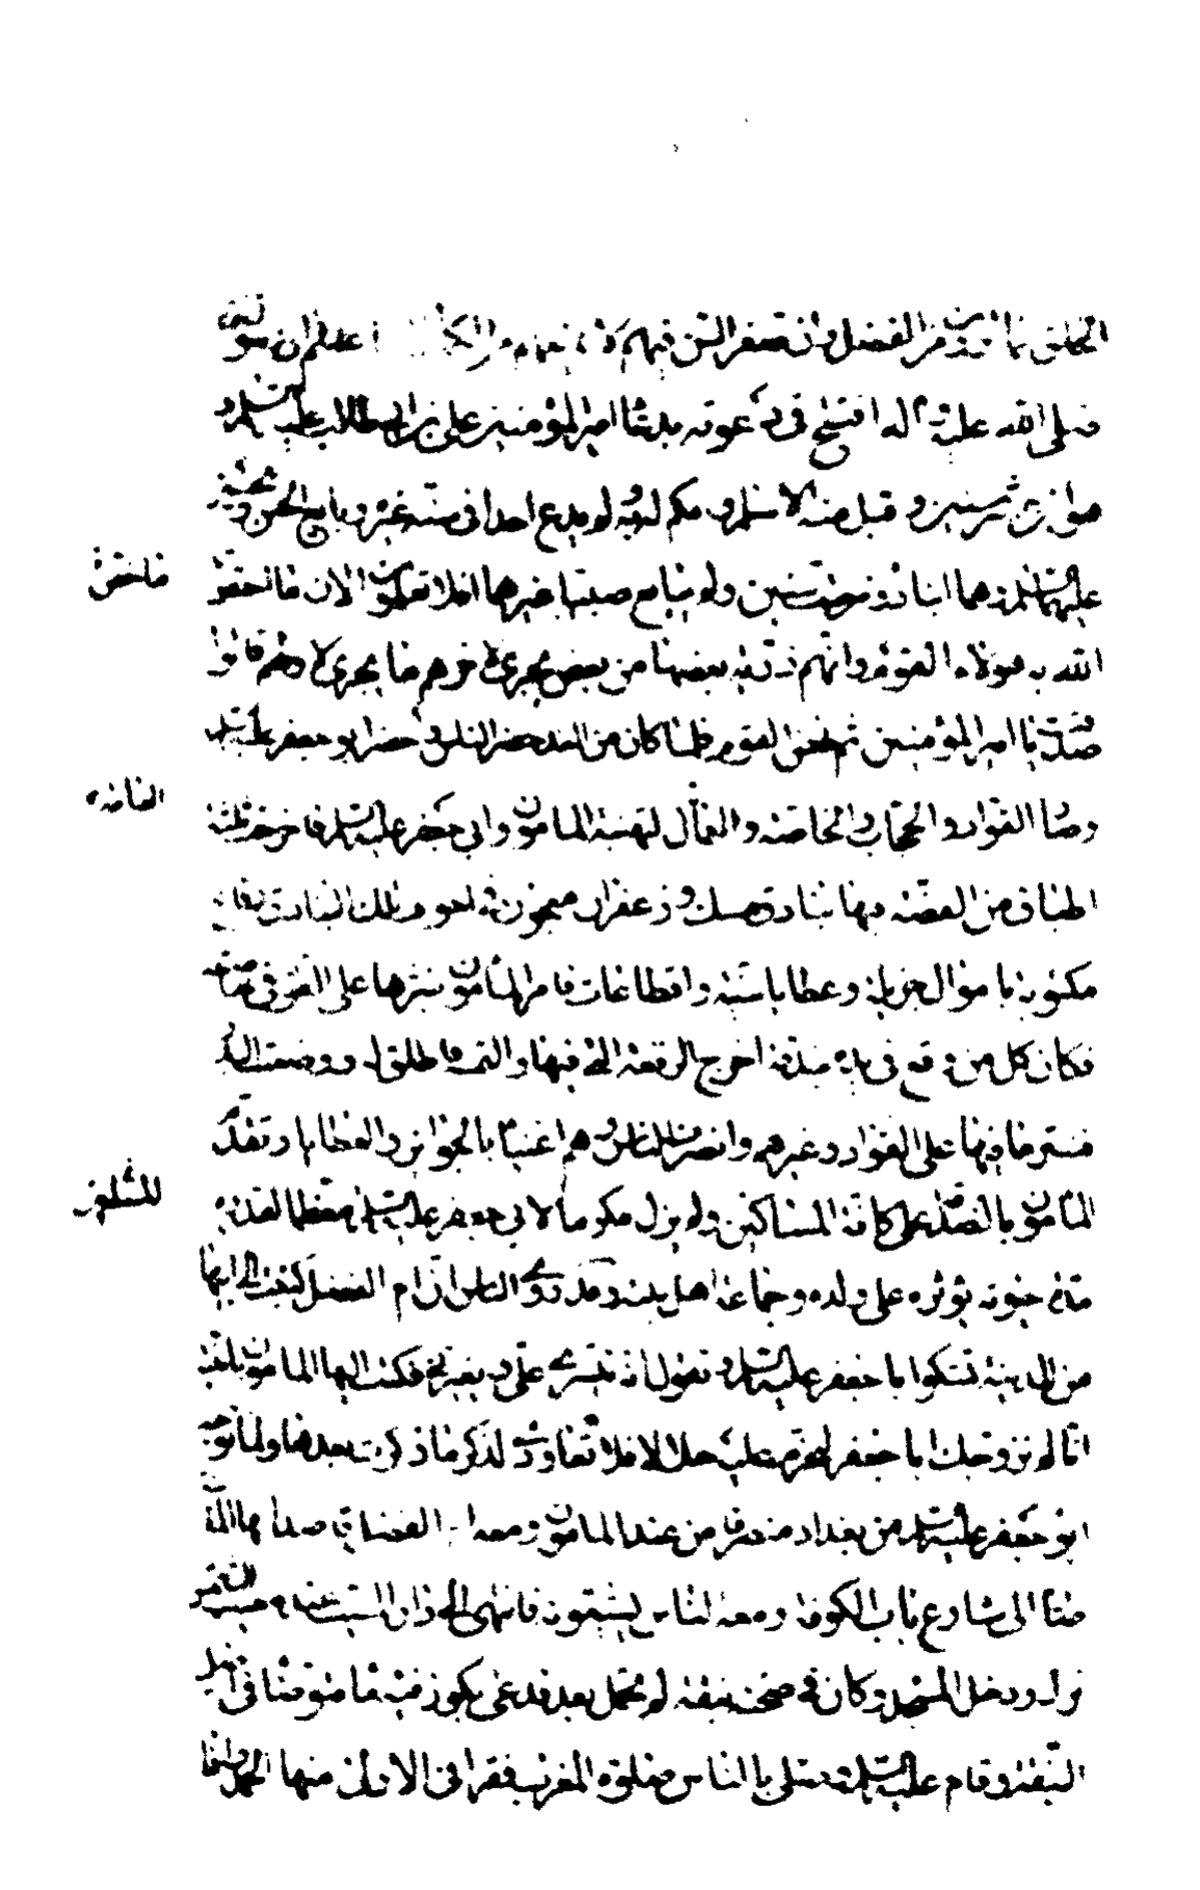 الخلق بما ترون من الفضل وان صغر السن فيهم لا يمنعهم من الكمال اما علمتم ان رسول
صلى الله عليه وآله افتتح دعوته بدعاء امير المؤمنين علي بن ابي طالب عليه السلام و
هو ابن عشر سنين وقبل منه الاسلام وحكم له به ولم يدع احدا في سنه غيره وبايع الحسن والحسين
عليهما السلام وهما ابنا دون ست سنين ولم يبايع صبيا غيرهما افلا تعلمون الان ما اختص
ما اختص
الله به هؤلاء القوم وانهم ذرية بعضها من بعض يجري لاخرهم ما يجري لاولهم قالوا
صدقت يا امير المؤمنين ثم نهض القوم فلما كان من الغد حضر الناس وحضر ابو جعفر عليه السلام
وصار القواد والحجاب والخاصة والعمال لتهنئة المامون وابي جعفر عليه السلام فاخرجت ثلثة
العامة
اطباق من الفضة فيها بنادق مسك وزعفران معجون في اجواف تلك البنادق رقاع
مكتوبة باموال جزيلة وعطايا سنية واقطاعات فامر المامون بنثرها على القوم في خاصته
فكان كل من وقع في يده بندقة اخرج الرقعة التي فيها والتمسه فاطلق له ووضعت البدر
فنثر ما فيها على القواد وغيرهم وانصرف الناس وهم اغنياء بالجوائز والعطايا وتقدم
المامون بالصدقة على كافة المساكين ولم يزل مكرما لابي جعفر عليه السلام معظما لقدره
مدة حيوته يؤثره على ولده وجماعة اهل بيته وقد روى الناس ان ام الفضل كتبت الى ابيها
من المدينة تشكوا ابا جعفر عليه السلام وتقول انه يتسرى علي ويغيرني فكتب اليها المامون يا بنية
انا لم نزوجك ابا جعفر لنحرم عليه حلالا فلا تعاودي لذكر ما ذكرت بعدها ولما توجه
ابو جعفر عليه السلام من بغداد منصرفا من عند المامون ومعه ام الفضل قاصدا بها المدينة
صار الى شارع باب الكوفة ومعه الناس يشيعونه فانتهى الى دار المسيب عند مغيب الشمس
نزل ودخل المسجد وكان في صحنه نبقة لم تحمل بعد فدعى بكوز فيه ماء فتوضا في اصل
النبقة وقام عليه السلام فصلى بالناس صلوة المغرب فقرا في الاولى منها الحمد واذا